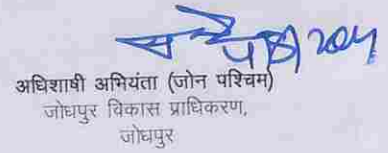 अधिशाषी अभियंता (जोन पश्चिम)
जोधपुर विकास प्राधिकरण,
जोधपुर